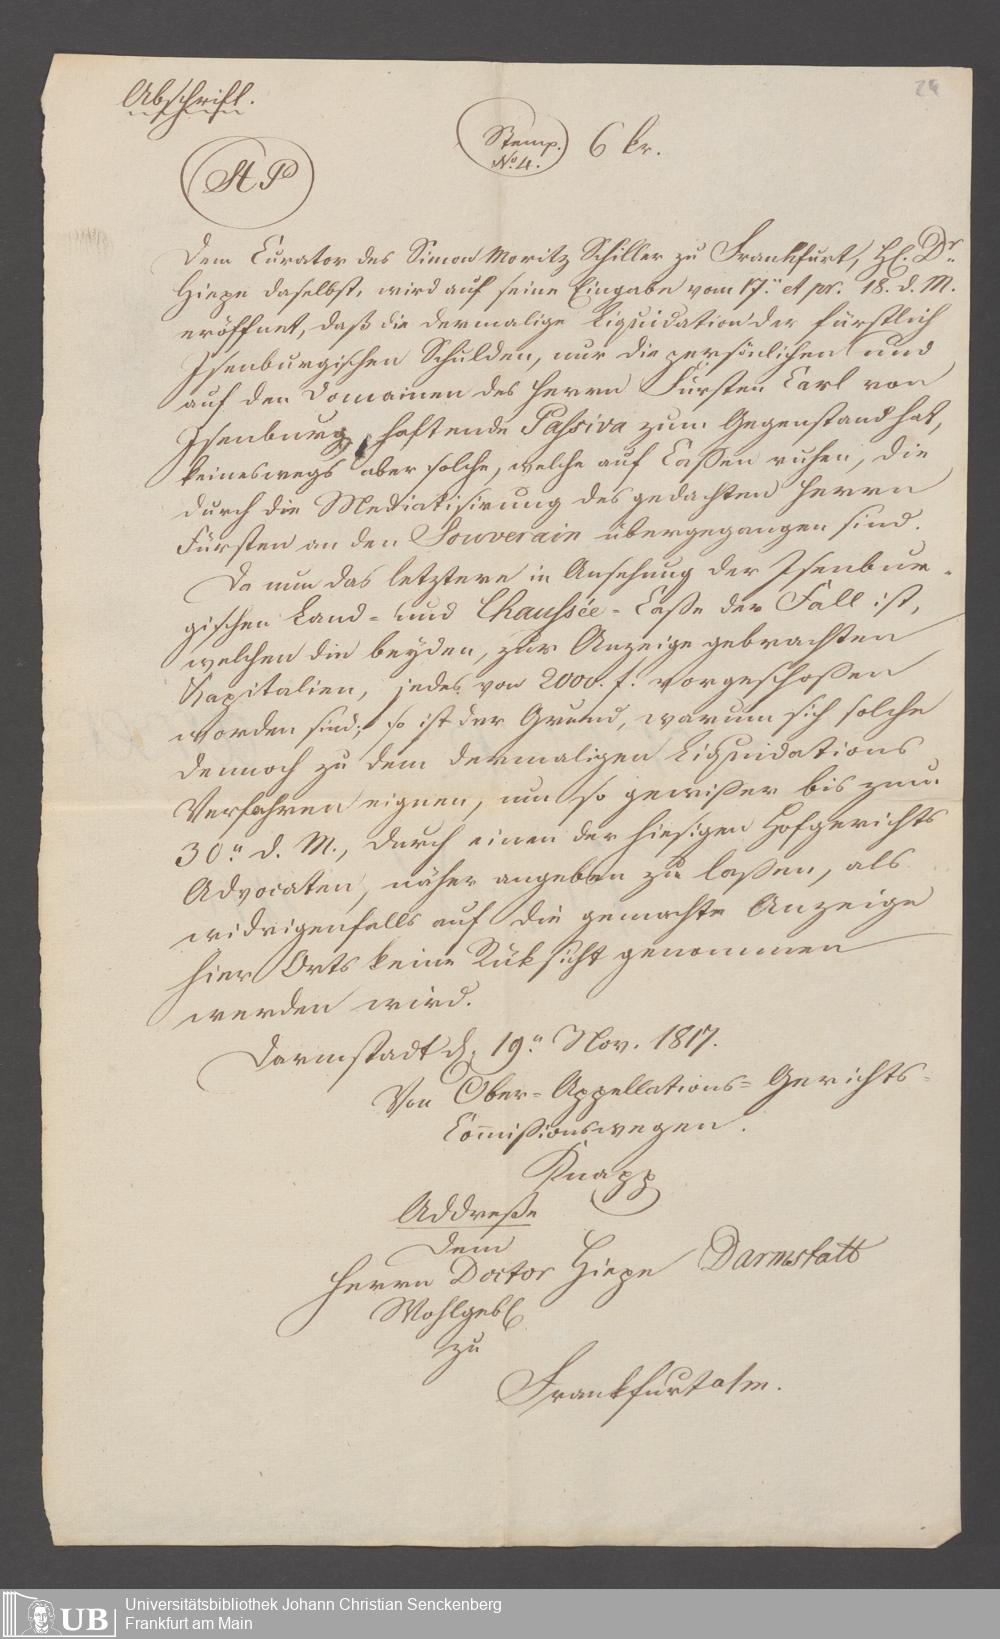 24
Abschrift.
Stemp.
No. 4.
6 kr.
St P
Dem Curator des Simon Moritz Schiller zu Frankfurt, H. Dr.
Hiepe daselbst, wird auf seine Eingabe vom 17.n et pr. 18. d. M.
eröffnet, daß die dermalige Liquidation der fürstlich
Isenburgischen Schulden, nur die persönlichen und
auf den Domainen des Herrn Fürsten Carl von
Isenburg haftende Passiva zum Gegenstand hat,
keineswegs aber solche, welche auf Cassen ruhen, die
durch die Mediatisirung des gedachten Herrn
Fürsten an den Souverain übergegangen sind.
Da nun das letztere in Ansehung der Isenbur-
gischen Land- und Chaussée-Casse der Fall ist,
welchen die beyden, zur Anzeige gebrachten
Kapitalien, jedes von 2000. f. vorgeschossen
worden sind; so ist der Grund, warum sich solche
dennoch zu dem dermaligen Liquidations
Verfahren eignen, um so gewisser bis zum
30.n d. M., durch einen der hiesigen Hofgerichts
Advocaten, näher angeben zu lassen, als
widrigenfalls auf die gemachte Anzeige
hier Orts keine Rüksicht genommen
werden wird.
Darmstadt d. 19.n Nov. 1817.
Von Ober-Appellations-Gerichts-
Com̄issionswegen.
Knapp
Addresse
Dem
Herrn Doctor Hiepe Darmstatt
Wohlgeb.
zu
Frankfurt a/m.
UB
Universitätsbibliothek Johann Christian Senckenberg
Frankfurt am Main